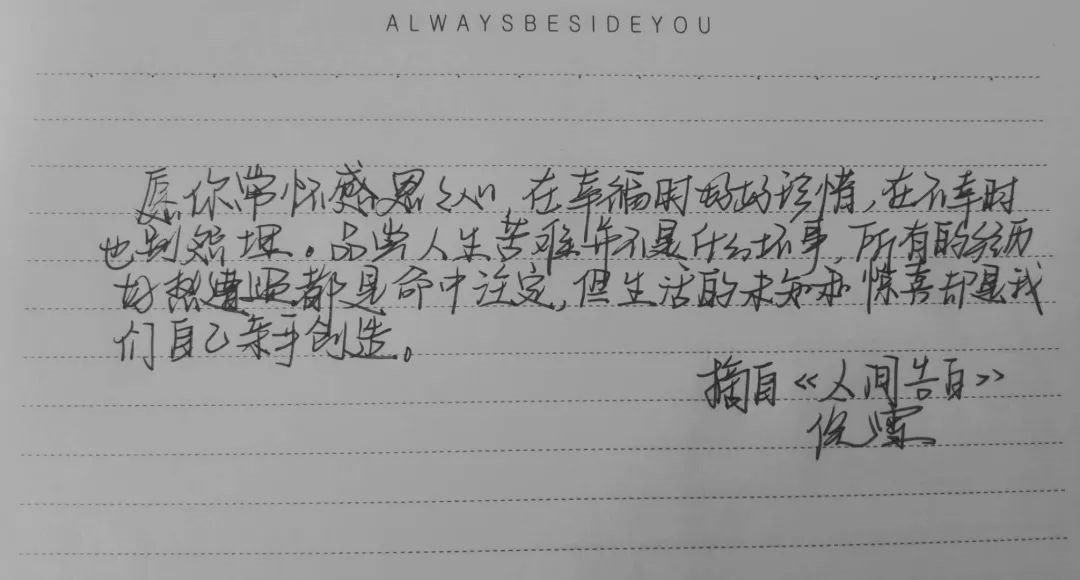 ALWAYSBESIDEYOU
愿你常怀感恩之心,在幸福时好好珍惜,在不幸时
也别怨埋。品些人生苦难并不是什么坏事,所有的经历
好想遭遇都是命中注定,但生活的未知和惊喜却是我
们自己亲手创造。
摘自《人间告白》